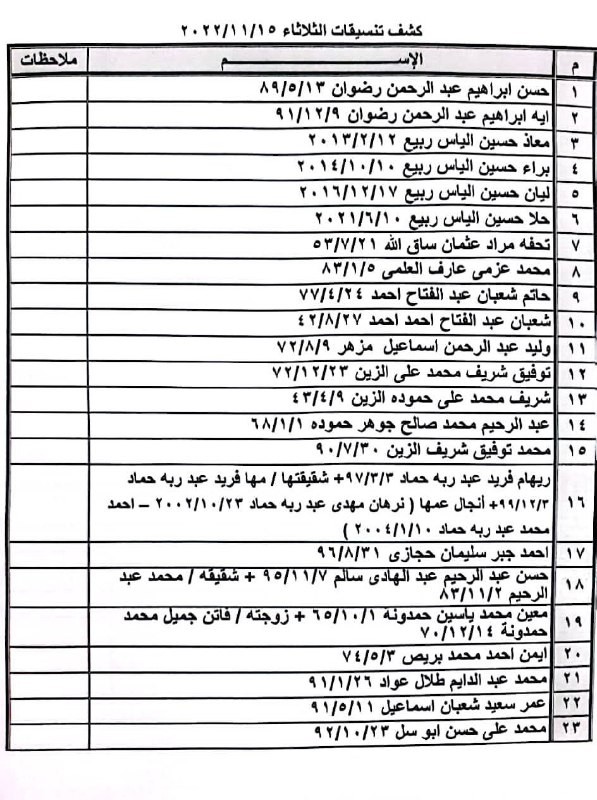 كشف تنسيقات الثلاثاء ٢٠٢٢/١١/١٥
م الإســـــــــم ملاحظات
١ حسن ابراهيم عبد الرحمن رضوان ٨٩/٥/١٣
٢ ايه ابراهيم عبد الرحمن رضوان ٩١/١٢/٩
٣ معاذ حسين الياس ربيع ٢٠١٣/٢/١٢
٤ براء حسين الياس ربيع ٢٠١٤/١٠/١٠
٥ ليان حسين الياس ربيع ٢٠١٦/١٢/١٧
٦ حلا حسين الياس ربيع ٢٠٢١/٦/١٠
٧ تحفه مراد عثمان ساق الله ٥٣/٧/٢١
٨ محمد عزمى عارف العلمى ٨٣/١/٥
٩ حاتم شعبان عبد الفتاح احمد ٧٧/٤/٢٤
١٠ شعبان عبد الفتاح احمد احمد ٤٢/٨/٢٧
١١ وليد عبد الرحمن اسماعيل مزهر ٧٢/٨/٩
١٢ توفيق شريف محمد على الزين ٧٢/١٢/٢٣
١٣ شريف محمد على حموده الزين ٤٣/٤/٩
١٤ عبد الرحيم محمد صالح جوهر حموده ٦٨/١/١
١٥ محمد توفيق شريف الزين ٩٠/٧/٣٠
١٦ ريهام فريد عبد ربه حماد ٩٧/٣/٣+ شقيقتها / مها فريد عبد ربه حماد
٩٩/١٢/٣+ أنجال عمها ( نرهان مهدى عبد ربه حماد ٢٠٠٢/١٠/٢٣ – احمد
محمد عبد ربه حماد ٢٠٠٤/١/١٠ )
١٧ احمد جبر سليمان حجازى ٩٦/٨/٣١
١٨ حسن عبد الرحيم عبد الهادى سالم ٩٥/١١/٧ + شقيقه / محمد عبد
الرحيم ٨٣/١١/٢
١٩ معين محمد ياسين حمدونة ٦٥/١٠/١ + زوجته / فاتن جميل محمد
حمدونة ٧٠/١٢/١٤
٢٠ ايمن احمد محمد بريص ٧٤/٥/٣
٢١ محمد عبد الدايم طلال عواد ٩١/١/٢٦
٢٢ عمر سعيد شعبان اسماعيل ٩١/٥/١١
٢٣ محمد على حسن ابو سل ٩٢/١٠/٢٣